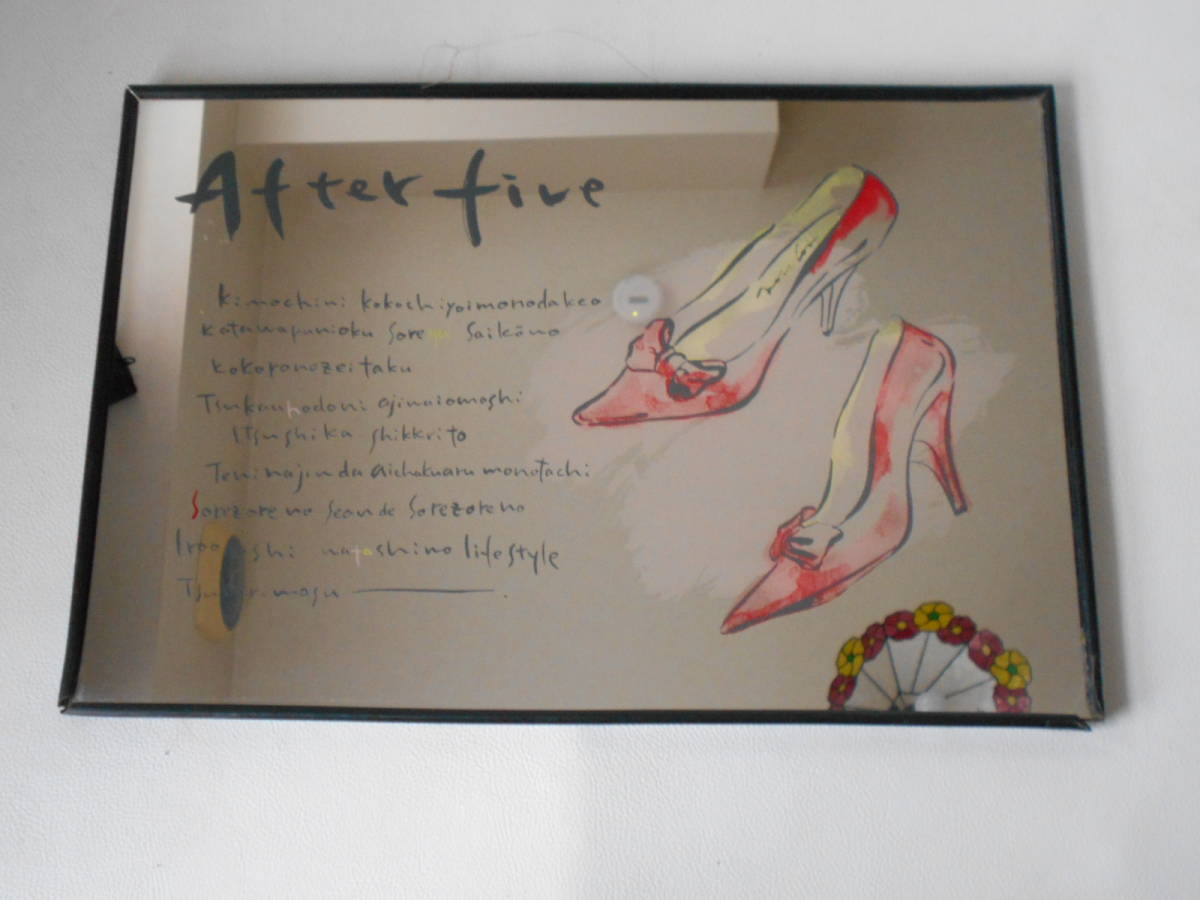 After five
Kimochini kokochiyoimonodakeo
Katawapunioku Sore Saikōno
kokoponozeitaku
Tsukauhodoni ajinaiomashi
Itsushika shikkrito
Teni najinda aichakuaru monotachi
Sorezore no Scande Sorezoreno
watashino lifestyle